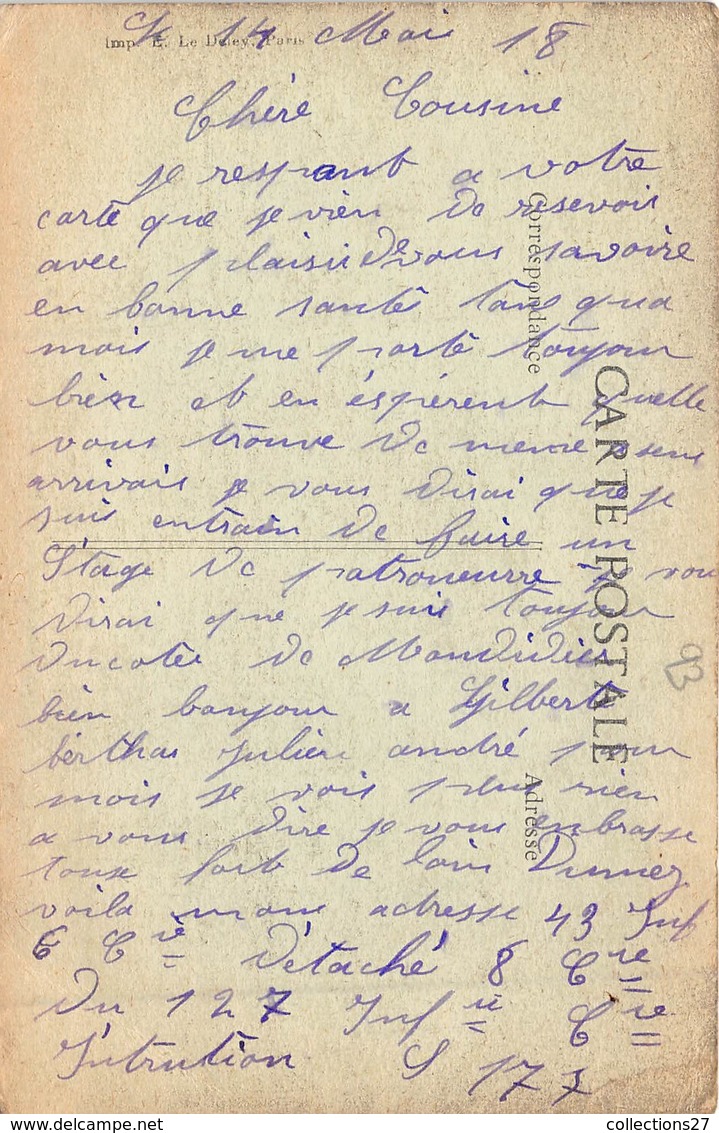 Imp. E. Le Deley, Paris
Le 14 Mai 18
Chére Cousine
je respont a votre
carte que je vien de resevois
avec plaisir de vous savoire
en bonne santé tans qua
mois je me porte toujour
bien et en éspérent quelle
vous trouve de meme
arrivais je vous dirai que je
suis entrain de faire un
Stage de patroneurre je vou
dirai que je suis toujour
ducotés de Mondidier
bien bonjour a Gilberte
berthas julien andré pour
mois je vois plus rien
a vous dire je vous enbrasse
tous fort de loin Dumez
voila mons adresse 43 Inf
6 Cie Détaché 8 Cie
du 127 Infie Cie
Intrution S 177
Correspondance
CARTE POSTALE
Adresse
93
collections27